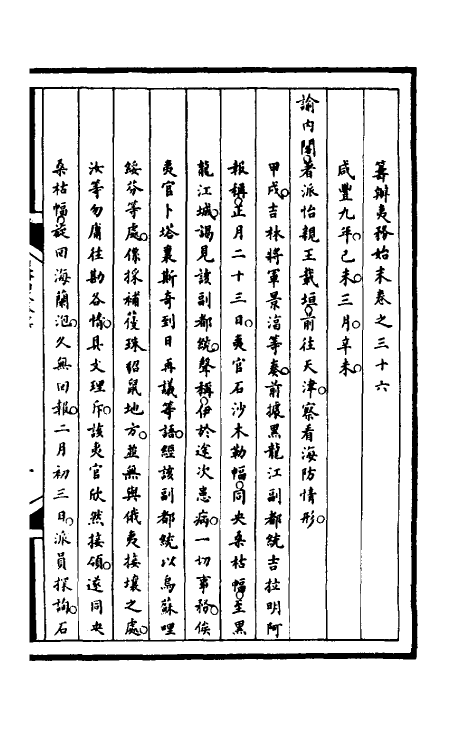 籌辦夷務始末卷之三十六
咸豐九年己未三月辛未
諭內閣著派怡親王載垣前往天津察看海防情形
甲戌吉林將軍景淯等奏前據黑龍江副都統吉拉明阿
報稱正月二十三日夷官石沙木勒幅同夬桑枯幅至黑
龍江城謁見該副都統聲稱伊於途次患病一切事務俟
夷官卜塔裏斯奇到日再議等語經該副都統以烏蘇哩
綏芬等處係採補蓡珠貂鼠地方並無與俄夷接壤之處
汝等勿庸往勘各情具文理斥該夷官欣然接領遂同夬
桑枯幅旋回海蘭泡久無回報二月初三日派員探詢石